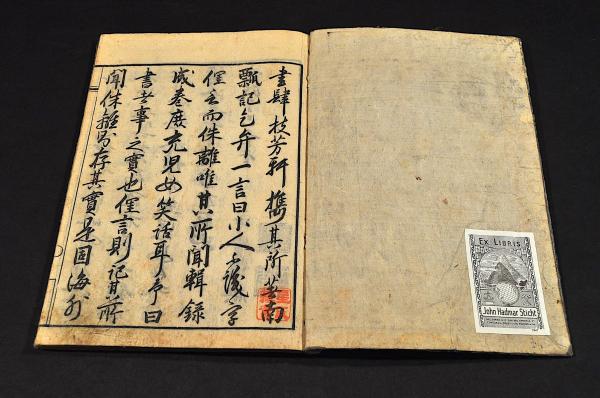 書肆枝芳軒携其所著南
瓢記乞弁一言曰小人不識字
俚言而侏離唯其所聞輯録
成巻庶充児女笑話耳予曰
書者事之實也俚言則記其所
聞侏離乃存其實是固海外
EX LIBRIS
John Hadmar Sticht